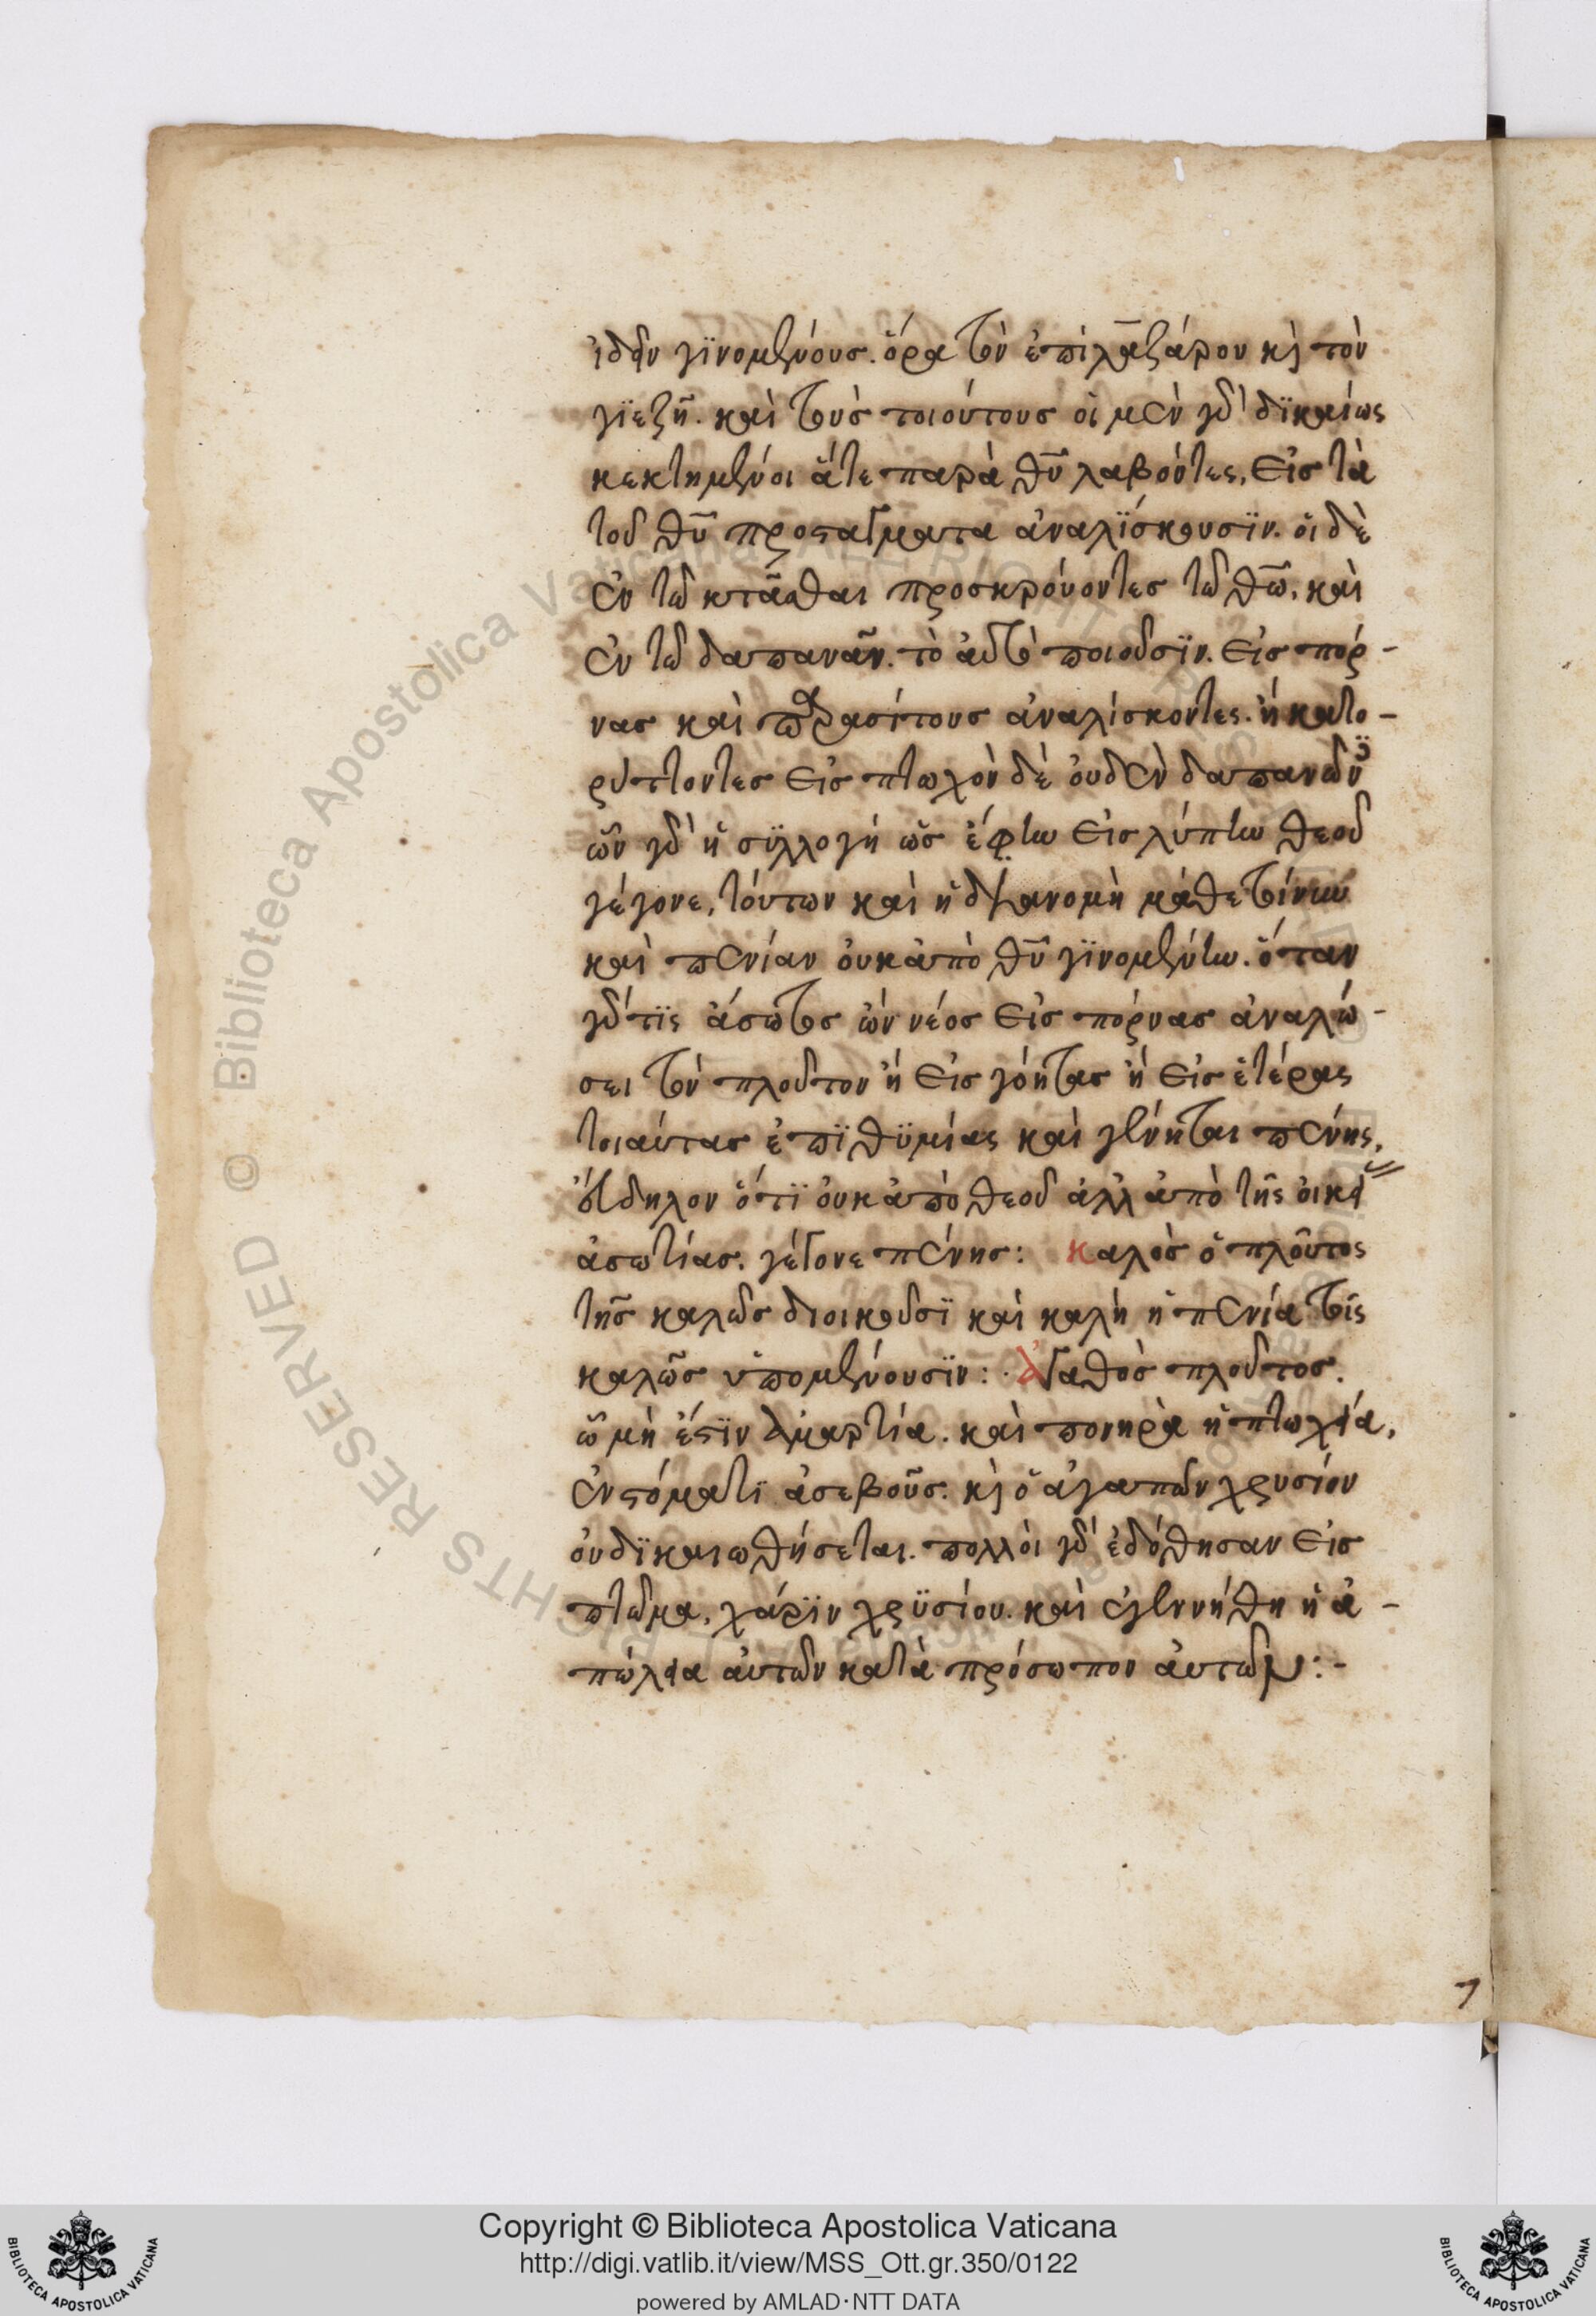 ἰδεῖν γϊνομένους. ὅρα τὸν ἐπὶ λαζάρου κὶ τὸν
γϊεζῆ. καὶ τοὺς τοιούτους οἱ μὲν γὰρ δϊκαίως
κεκτημένοι ἅτε παρὰ θῦ λαβόντες, εἰς τὰ
τοῦ θῦ προστάγματα ἀναλΐσκουσϊν. οἱ δὲ
ἐν τῶ κτᾶσθαι προσκρούοντες τῶ θῶ, καὶ
ἐν τῶ δαπανᾶν. τὸ αὐτὸ ποιοῦσϊν. εἰς πόρ-
νας καὶ παρασίτους ἀναλίσκοντες. ἢ κατο-
ρύττοντες εἰς πτωχὸν δὲ οὐδὲν δαπανῶν
ὧν γὰρ ἡ σϋλλογὴ ὡς ἔφην εἰς λύπην θεοῦ
γέγονε, τούτων καὶ ἡ διανομὴ μάθε τίνων
καὶ πενίαν οὐκ ἀπὸ θῦ γϊνομένην. ὅταν
γάρ τϊς ἄσωτος ὢν νέος εἰς πόρνας ἀναλώ-
σει τὸν πλοῦτον ἢ εἰς γόητας ἢ εἰς ἑτέρας
τοιαύτας ἐπϊθϋμίας καὶ γένηται πένης,
εὔδηλον ὅτϊ οὐκ ἀπὸ θεοῦ ἀλλ ἀπὸ τῆς οἰκεί
ἀσωτίας. γέγονε πένης: καλὸς ὁ πλοῦτος
τῆς καλῶς διοικοῦσϊ καὶ καλὴ ἡ πενία τοῖς
καλῶς ὑπομένουσϊν: ἀγαθὸς πλοῦτος.
ὧ μὴ ἔστϊν ἁμαρτία. καὶ πονηρὰ ἡ πτωχεία,
ἐν στόματϊ ἀσεβοῦς. κὶ ὁ ἀγαπῶν χρυσίον
οὐ δϊκαιωθήσεται. πολλοὶ γὰρ ἐδόθησαν εἰς
πτῶμα, χάρϊν χρϋσίου. καὶ ἐγεννήθη ἡ ἀ-
πώλεια αὐτῶν κατὰ πρόσωπον αὐτῶν:-
7
© Biblioteca Apostolica Vaticana ALL RIGHTS RESERVED
Copyright © Biblioteca Apostolica Vaticana
http://digi.vatlib.it/view/MSS_Ott.gr.350/0122
powered by AMLAD·NTT DATA
BIBLIOTECA APOSTOLICA VATICANA
BIBLIOTECA APOSTOLICA VATICANA